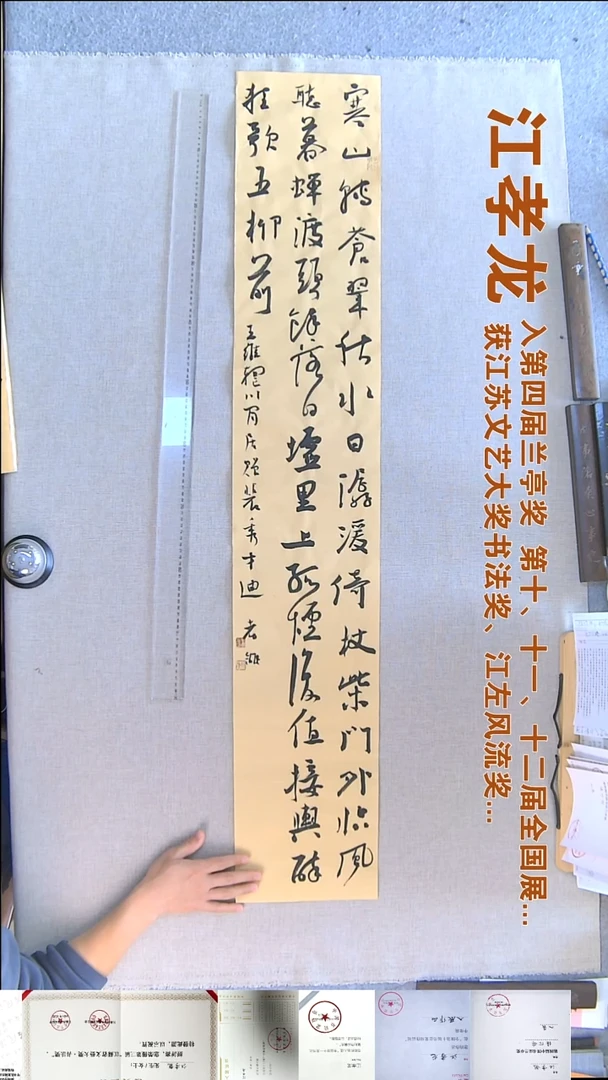 江孝龙
入第四届兰亭奖 第十、十一、十二届全国展...
获江苏文艺大奖书法奖、江左风流奖...
寒山轉蒼翠秋水日潺湲倚杖柴門外臨風
聽暮蟬渡頭餘落日墟里上孤煙復值接輿醉
狂歌五柳前 王維輞川閒居贈裴秀才迪 孝龍